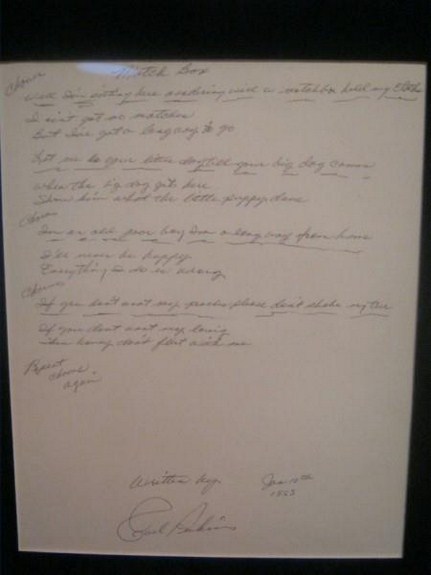 Match Box
Chorus
Well I'm sitting here wondering will a matchbox hold my Cloths
I ain't got no matches
But I've got a long way to go
Let me be your little dog till your big dog comes
When the big dog gets here
Show him what the little puppy done
Chorus
I'm an old poor boy I'm a long way from home
I'll never be happy
Everything I do is wrong
Chorus
If you don't want my peaches please don't shake my tree
If you don't want my loving
then honey don't flirt with me
Repeat
Chorus
again
Written by
Carl Perkins
Jan